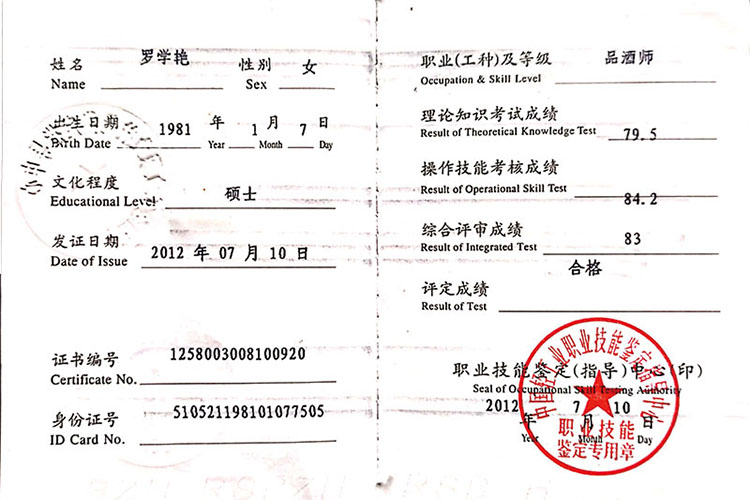 姓名 罗学艳 性别 女
Name Sex
出生日期 1981 年 1 月 7 日
Birth Date Year Month Day
文化程度 硕士
Educational Level
发证日期 2012 年 07 月 10 日
Date of Issue
证书编号 1258003008100920
Certificate No.
身份证号 510521198101077505
ID Card No.
职业(工种)及等级 品酒师
Occupation & Skill Level
理论知识考试成绩
Result of Theoretical Knowledge Test 79.5
操作技能考核成绩
Result of Operational Skill Test 84.2
综合评审成绩 83
Result of Integrated Test
合格
评定成绩
Result of Test
职业技能鉴定(指导)中心(印)
Seal of Occupational Skill Testing Authority
2012 7 10
年 月 日
Year Month Day
职业技能
鉴定专用章